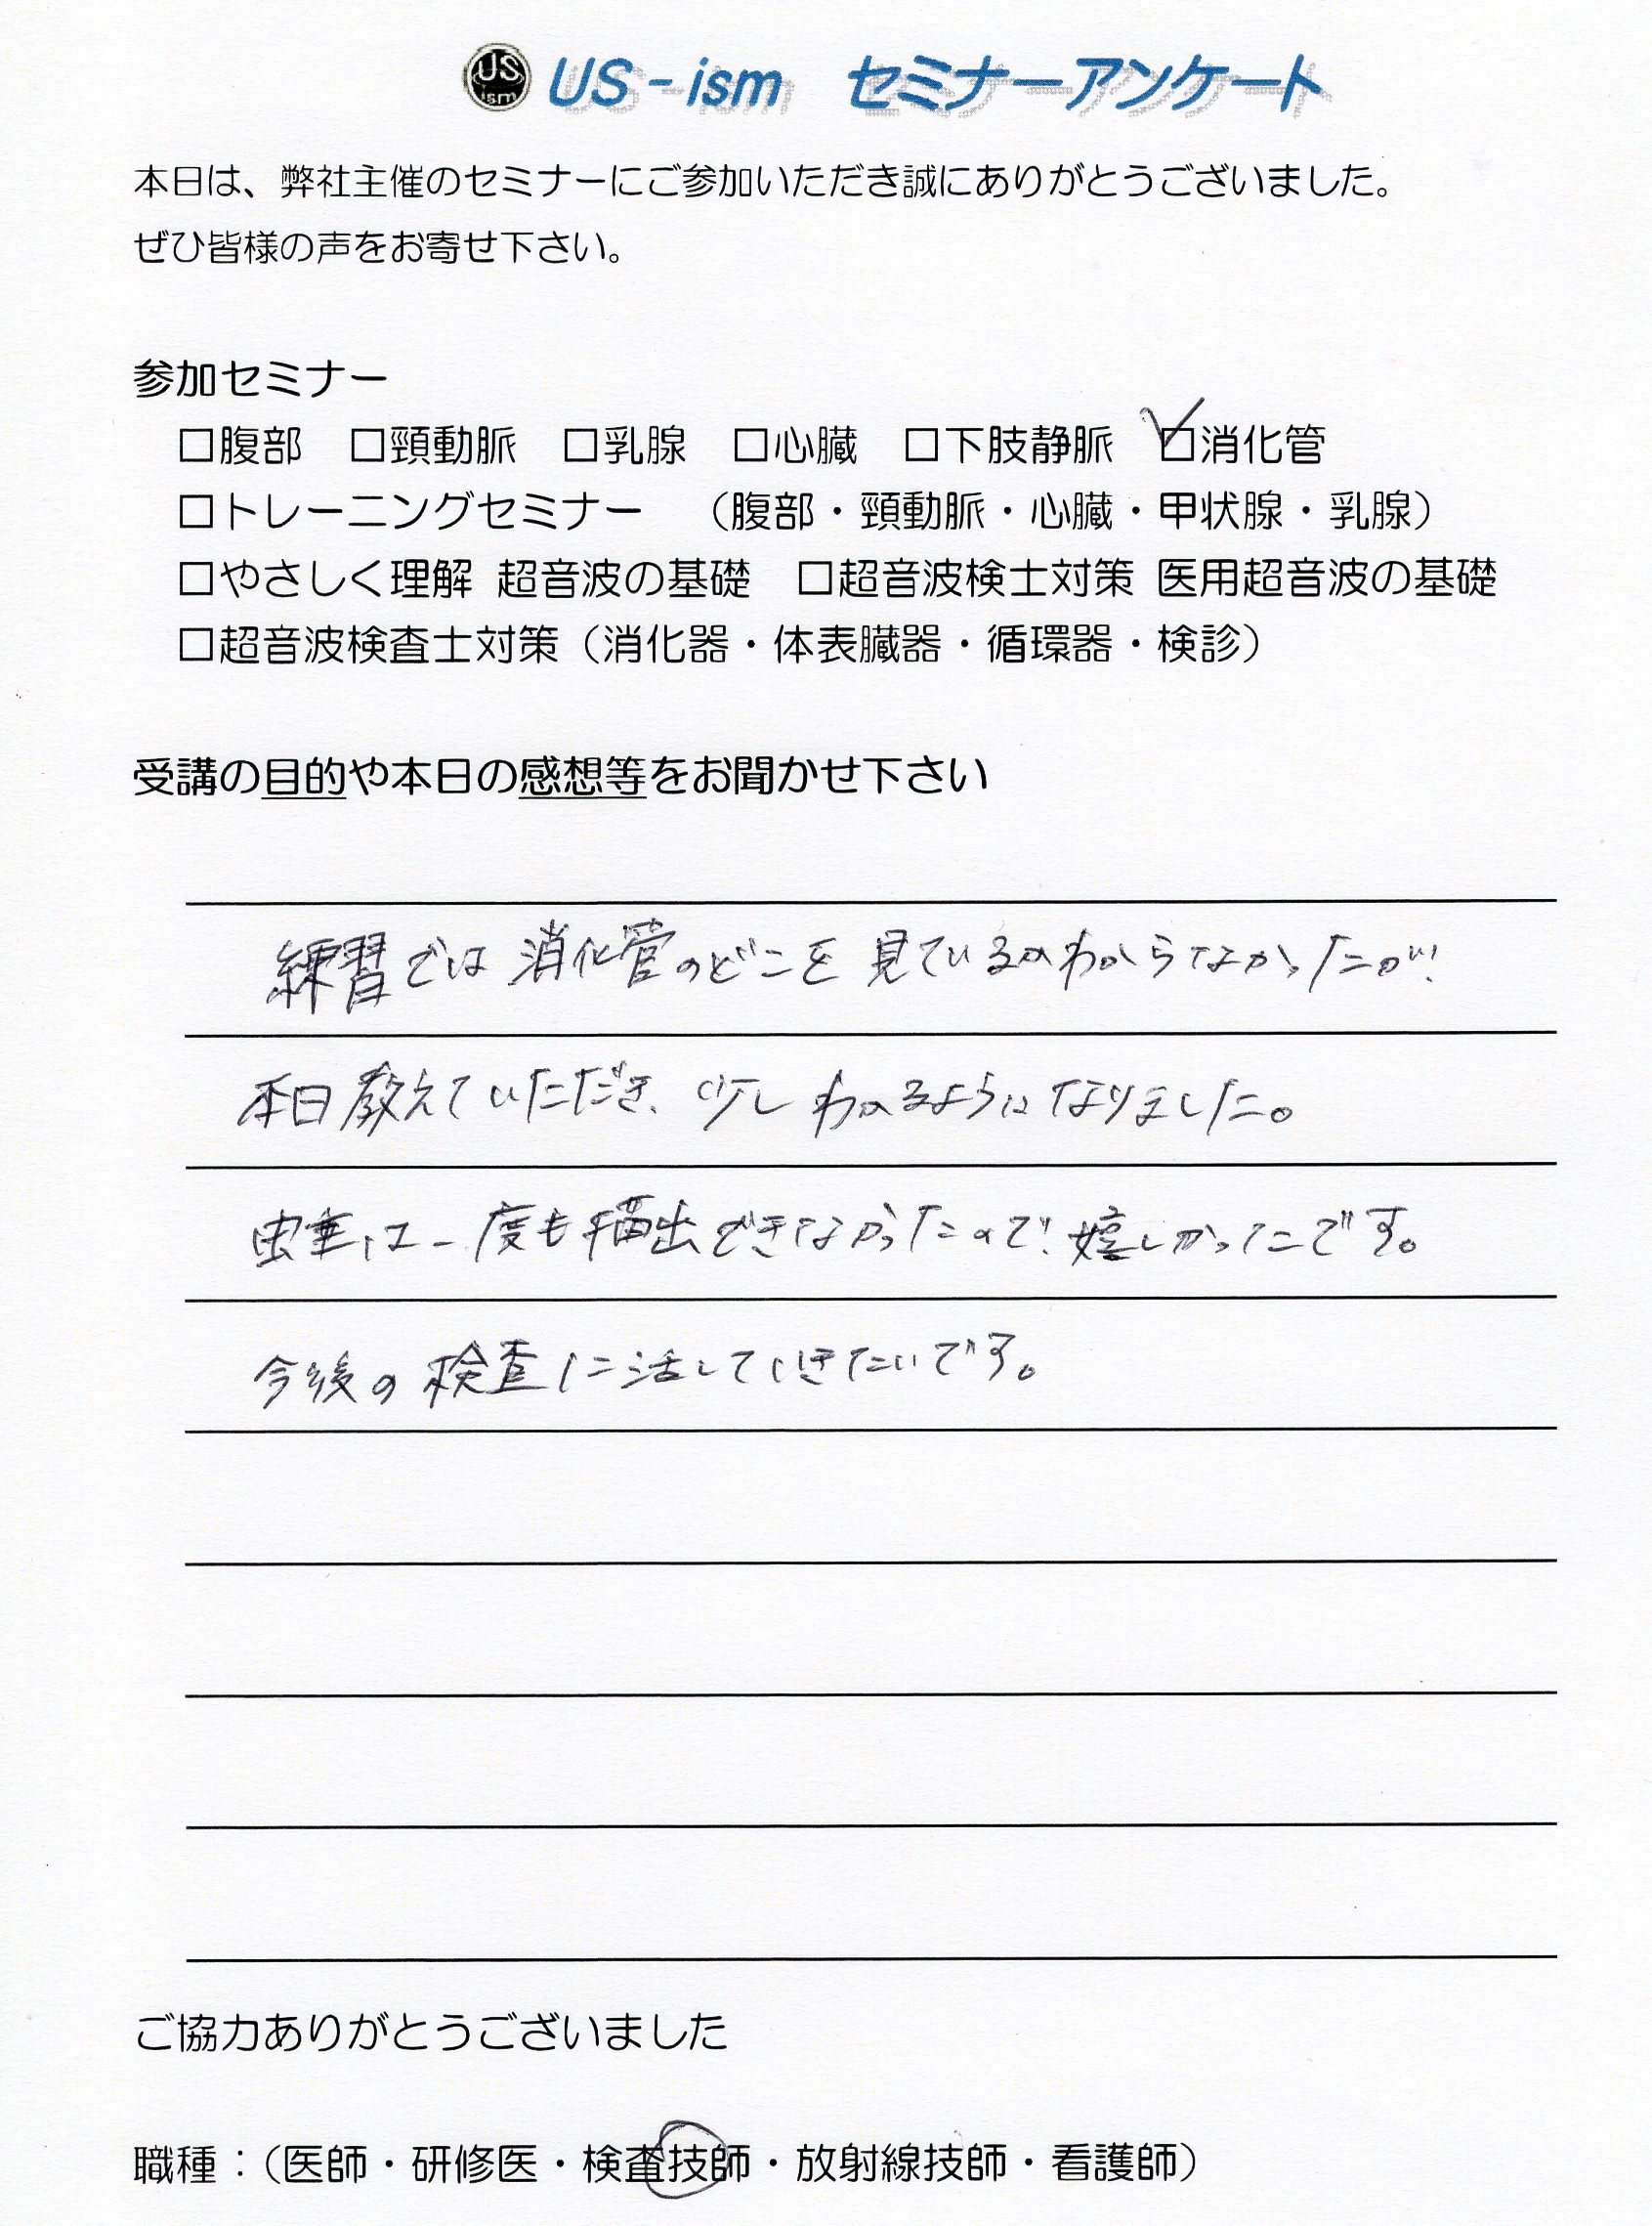 US ism US-ism セミナーアンケート
本日は、弊社主催のセミナーにご参加いただき誠にありがとうございました。
ぜひ皆様の声をお寄せ下さい。
参加セミナー
□腹部 □頸動脈 □乳腺 □心臓 □下肢静脈 ☑消化管
□トレーニングセミナー （腹部・頸動脈・心臓・甲状腺・乳腺）
□やさしく理解 超音波の基礎 □超音波検士対策 医用超音波の基礎
□超音波検査士対策（消化器・体表臓器・循環器・検診）
受講の目的や本日の感想等をお聞かせ下さい
練習では消化管のどこを見ているのかわからなかったが、
本日教えていただき、少しわかるようになりました。
虫垂は一度も描出できなかったので、嬉しかったです。
今後の検査に活していきたいです。
ご協力ありがとうございました
職種：（医師・研修医・検査技師・放射線技師・看護師）